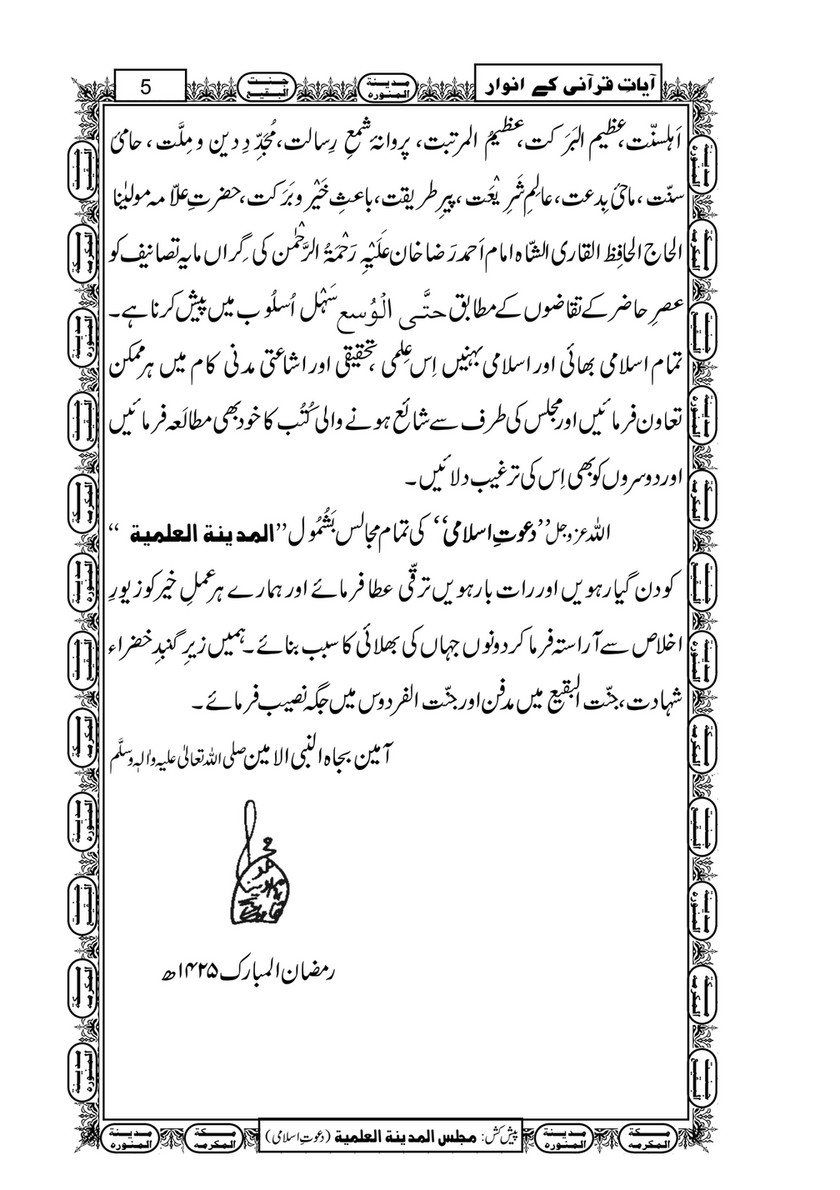 آیاتِ قرآنی کے انوار
5
جنت البقیع
مدینة المنورہ
اَہلسنّت، عظیم البَرَکت، عظیمُ المرتبت، پروانۂ شمعِ رِسالت، مُجَدِّدِ دین و مِلَّت، حامیٔ
سنّت، ماحیٔ بِدعت، عالِمِ شَرِیْعَت، پیرِ طریقت، باعثِ خَیْر و بَرَکت، حضرتِ علاّمہ مولیٰنا
الحاج الحافِظ القاری الشّاہ امام اَحمد رَضا خان عَلَیْہِ رَحْمَۃُ الرَّحْمٰن کی گِراں مایہ تصانیف کو
عصرِ حاضر کے تقاضوں کے مطابق حتَّی الْوُسع سَہْل اُسلُوب میں پیش کرنا ہے۔
تمام اسلامی بھائی اور اسلامی بہنیں اِس عِلمی، تحقیقی اور اشاعتی مدنی کام میں ہر ممکن
تعاون فرمائیں اور مجلس کی طرف سے شائع ہونے والی کُتُب کا خود بھی مطالَعہ فرمائیں
اور دوسروں کو بھی اِس کی ترغیب دلائیں۔
اللہ عزوجل ’’دعوتِ اسلامی‘‘ کی تمام مجالس بَشُمُول ’’المدینة العلمیة‘‘
کو دن گیارہویں اور رات بارہویں ترقّی عطا فرمائے اور ہمارے ہر عملِ خیر کو زیورِ
اخلاص سے آراستہ فرما کر دونوں جہاں کی بھلائی کا سبب بنائے۔ ہمیں زیرِ گنبدِ خضراء
شہادت، جنّت البقیع میں مدفن اور جنّت الفردوس میں جگہ نصیب فرمائے۔
آمین بجاہ النبی الامین صلی اللہ تعالیٰ علیہ واٰلہٖ وسلَّم
رمضان المبارک ۱۴۲۵ھ
پیش کش: مجلس المدینة العلمیة (دعوتِ اسلامی)
مدینة المنورہ
مکة المکرمہ
مدینة المنورہ
مکة المکرمہ